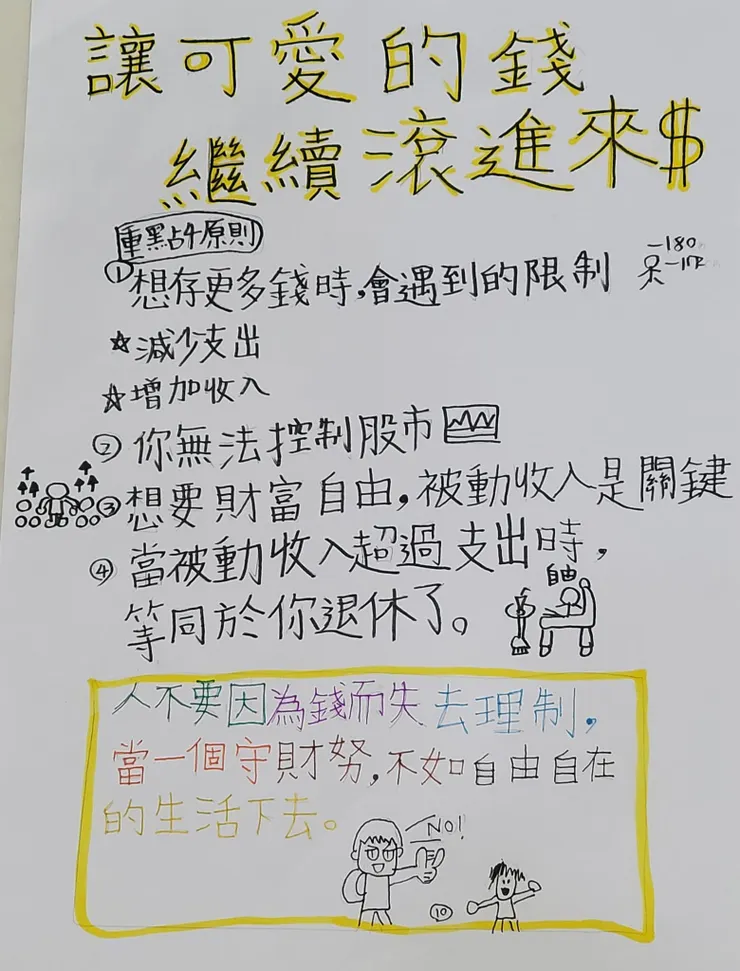 讓可愛的錢
繼續滾進來$
重點4原則
①想存更多錢時,會遇到的限制
-180
☆減少支出
☆增加收入
②你無法控制股市
③想要財富自由,被動收入是關鍵
④當被動收入超過支出時,
等同於你退休了。
自由
人不要因為錢而失去理制,
當一個守財努,不如自由自在
的生活下去。
NO!
⑩